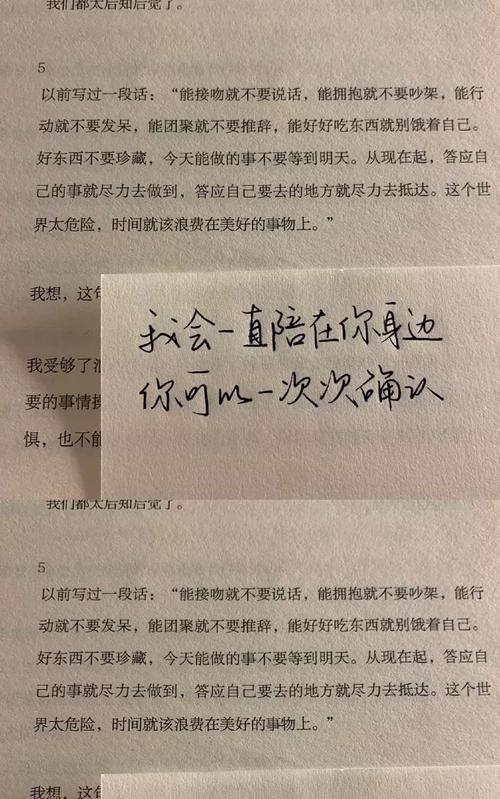 我们都太后知后觉了。
5
以前写过一段话：“能接吻就不要说话，能拥抱就不要吵架，能行
动就不要发呆，能团聚就不要推辞，能好好吃东西就别饿着自己。
好东西不要珍藏，今天能做的事不要等到明天。从现在起，答应自
己的事就尽力去做到，答应自己要去的地方就尽力去抵达。这个世
界太危险，时间就该浪费在美好的事物上。”
我想，这
我会一直陪在你身边
你可以一次次确认
我受够了
要的事情
惧，也不能
我们都太后知后觉了。
5
以前写过一段话：“能接吻就不要说话，能拥抱就不要吵架，能行
动就不要发呆，能团聚就不要推辞，能好好吃东西就别饿着自己。
好东西不要珍藏，今天能做的事不要等到明天。从现在起，答应自
己的事就尽力去做到，答应自己要去的地方就尽力去抵达。这个世
界太危险，时间就该浪费在美好的事物上。”
我想，这